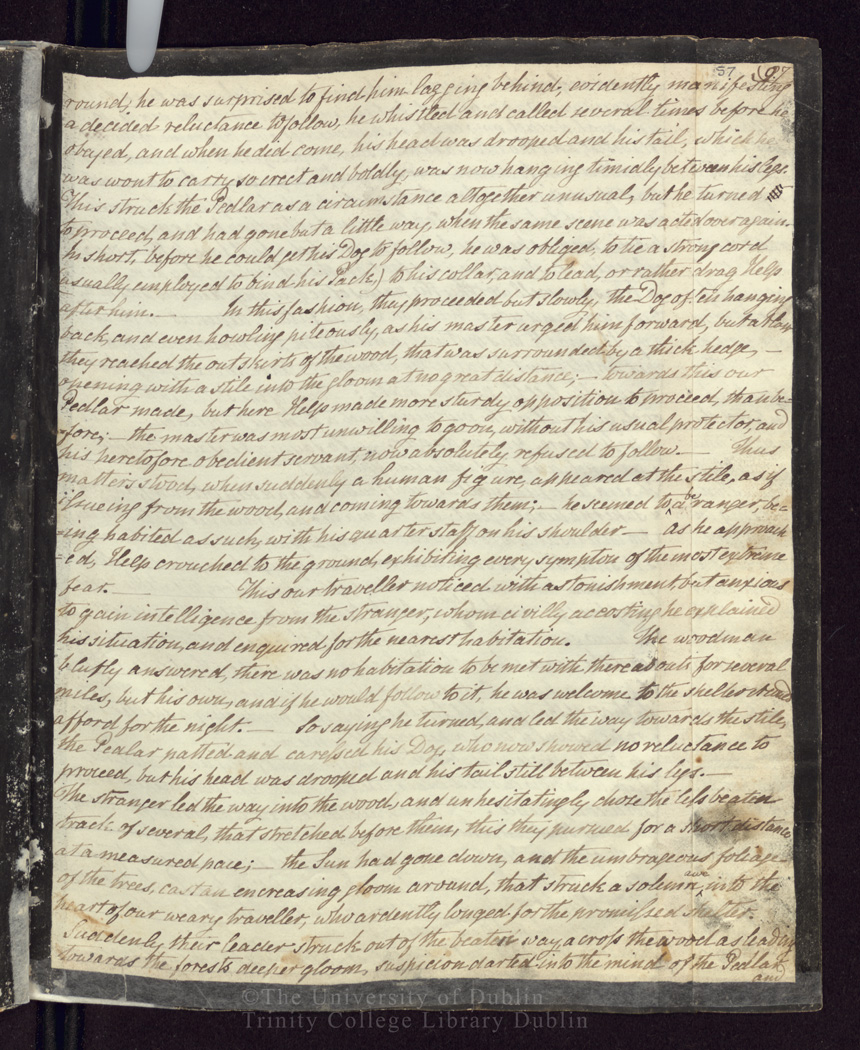 57 67
round, he was surprised to find him lagging behind, evidently manifesting
a decided reluctance to follow, he whistled and called several times before he
obeyed, and when he did come, his head was drooped and his tail, which he
was wont to carry so erect and boldly, was now hanging timidly between his legs.
This struck the Pedlar as a circumstance altogether unusual, but he turned
to proceed, and had gone but a little way, when the same scene was acted over again.
In short, before he could get his Dog to follow, he was obliged, to tie a strong cord
usually employed to bind his Pack) to his collar, and to lead, or rather drag Help
after him. — In this fashion, they proceeded but slowly, the Dog often hanging
back, and even howling piteously, as his master urged him forward, but at last
they reached the outskirts of the wood, that was surrounded by a thick hedge, —
opening with a stile into the gloom at no great distance; — towards this our
Pedlar made, but here Help made more sturdy opposition to proceed, than be=
=fore; — the master was most unwilling to go on, without his usual protector, and
his heretofore obedient servant, now absolutely refused to follow. — Thus
matters stood, when suddenly a human figure, appeared at the stile, as if
issueing from the wood, and coming towards them; — he seemed to be a ranger, be=
=ing habited as such, with his quarter staff on his shoulder — as he approach
=ed, Help crouched to the ground, exhibiting every symptom of the most extreme
fear. — This our traveller noticed with astonishment, but anxious
to gain intelligence from the stranger, whom civilly accosting he explained
his situation, and enquired for the nearest habitation. The woodman
bluffly answered, there was no habitation to be met with thereabouts for several
miles, but his own, and if he would follow to it, he was welcome to the shelter it could
afford for the night. — So saying he turned, and led the way towards the stile,
the Pedlar patted and caressed his Dog, who now showed no reluctance to
proceed, but his head was drooped and his tail still between his legs. —
The stranger led the way into the wood, and unhesitatingly chose the less beaten
track of several, that stretched before them, this they pursued for a short distance
at a measured pace; — the Sun had gone down, and the umbrageous foliage
of the trees, cast an encreasing gloom around, that struck a solemn awe into the
heart of our weary traveller, who ardently longed for the promissed shelter.
Suddenly their leader struck out of the beaten way across the wood as leading
towards the forests deeper gloom, suspicion darted into the mind of the Pedlar,
and
©The University of Dublin
Trinity College Library Dublin